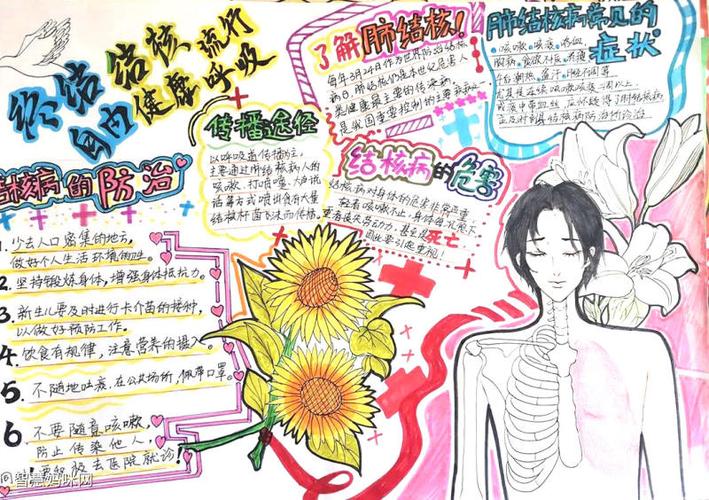 终结结核 流行
自由健康呼吸
了解肺结核!
每年3月24日作为世界防治结核
病日 肺结核们是本世纪危害人
类健康最主要的传染病,
是我国重要控制的主要疾病之
肺结核病常见的
症状
咳嗽、咳痰、咯血、
胸痛、食欲不振、疲乏
午后潮热、盗汗、不同等
尤其是连续咳嗽咳痰二周以上
或痰中带血丝 应怀疑得了肺结核病
应及时到县结核病防治所诊治
传播途径
以呼吸道传播为主,
主要通过肺结核病人的
咳嗽、打喷嚏、大声说
话等方式喷出含有大量
结核杆菌飞沫而传播.
结核病的危害
结核病对身体的危害非常严重
轻者咳嗽不止,身体每况愈下
重者丧失劳动力,甚至会死亡
因此要引起重视!
结核病的防治
1. 少去人口密集的地方,
做好个人生活环境的卫生。
2. 坚持锻炼身体,增强身体抵抗力。
3. 新生儿要及时进行卡介苗的接种,
以做好预防工作。
4. 饮食有规律,注意营养的摄入。
5. 不随地吐痰,在公共场所,佩带口罩。
6. 不要随意咳嗽,
防止传染他人,
去医院就诊!
@智慧妈咪网